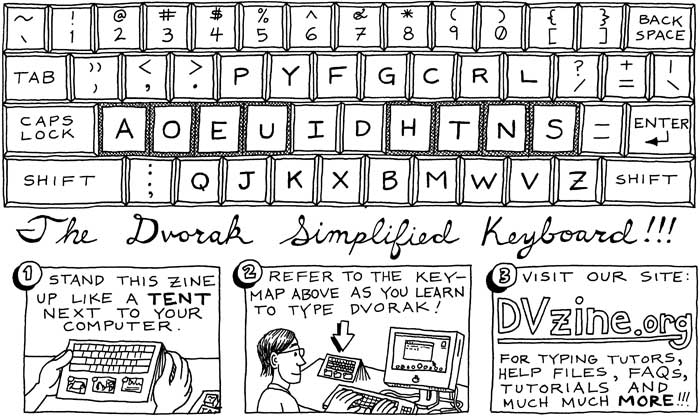 ~ ! @ # $ % ^ & * ( ) { } BACK
` 1 2 3 4 5 6 7 8 9 0 [ ] SPACE
TAB " < > P Y F G C R L ? + |
' , . / = \
CAPS LOCK A O E U I D H T N S — ENTER
–
SHIFT : Q J K X B M W V Z SHIFT
;
The Dvorak Simplified Keyboard!!!
1 STAND THIS ZINE
UP LIKE A TENT
NEXT TO YOUR
COMPUTER.
2 REFER TO THE KEY–
MAP ABOVE AS YOU LEARN
TO TYPE DVORAK!
3 VISIT OUR SITE:
DVzine.org
FOR TYPING TUTORS,
HELP FILES, FAQS,
TUTORIALS AND
MUCH MUCH MORE!!!